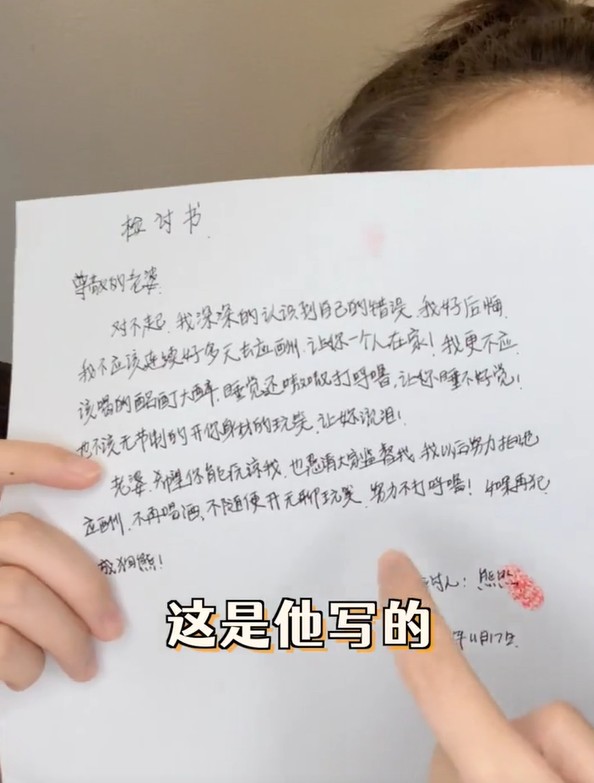 检讨书
尊敬的老婆
对不起,我深深的认识到自己的错误,我好后悔
我不应该连续好多天去应酬,让你一个人在家!我更不应
该喝的酩酊大醉,睡觉还嗷嗷打呼噜,让你睡不好觉!
也不该无节制的开你身材的玩笑,让你流泪!
老婆,希望你能原谅我,也恳请大家监督我,我以后努力拒绝
应酬,不再喝酒、不随便开无聊玩笑,努力不打呼噜!如果再犯
我狗熊!
讨人:熊熊
年11月17日
这是他写的